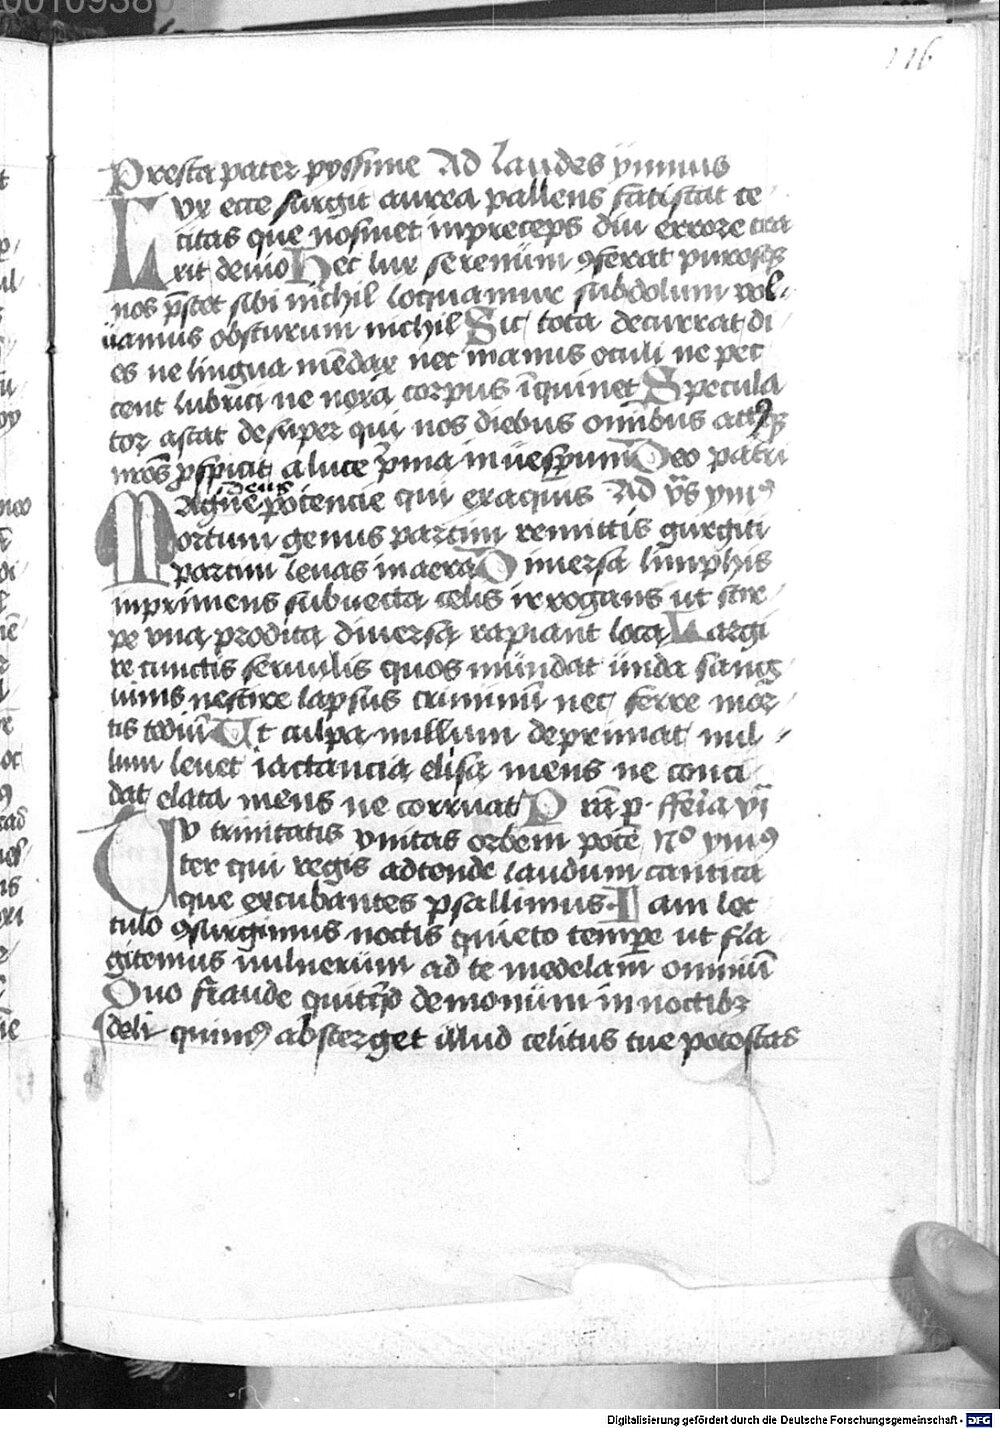 116
Presta pater pyssime Ad Laudes ymnus
Lux ecce surgit aurea pallens fatiscat ce
citas que nosmet in preceps diu errore tra
xit devio Hec lux serenum ꝯferat purosqꝫ
nos p̄stet sibi nichil loquamur subdolum vol
uamus obscurum nichil Sic tota decurrat di
es ne lingua mēdax nec manus oculi ne pec
cent lubrici ne noxa corpus īquinet Specula
tor astat desuper qui nos diebus omībus actꝰqꝫ
nr̄os ꝓspicit a luce p̄ma in vesꝑum Deo patri
deus
Magne potencie qui exaquis Ad vs̄ ymꝰ
ortum genus partim remittis gurgiti
partim levas in aera Dimersa limphis
inprimens subuecta celis irrogans ut stir
pe vna prodita diuersa rapiant loca Largi
re cunctis servulis quos mundat unda sang
uinis nescire lapsus criminū nec ferre mor
tis tediū Ut culpa nullum deprimat nul
lum levet iactancia elisa mens ne conci
dat elata mens ne corruat P rā p. fferia vj
Tu trinitatis vnitas orbem potē No ymꝰ
ter qui regis adtende laudum cantica
que excubantes psallimus. I am lec
tulo ꝯsurgimus noctis quieto tempe ut fla
gitemus uulnerum ad te medelam̄ omniū
Quo fraude quitqͥd demonum in noctibꝫ
deliquimꝰ absterget illud celitus tue potestas
Digitalisierung gefördert durch die Deutsche Forschungsgemeinschaft - DFG